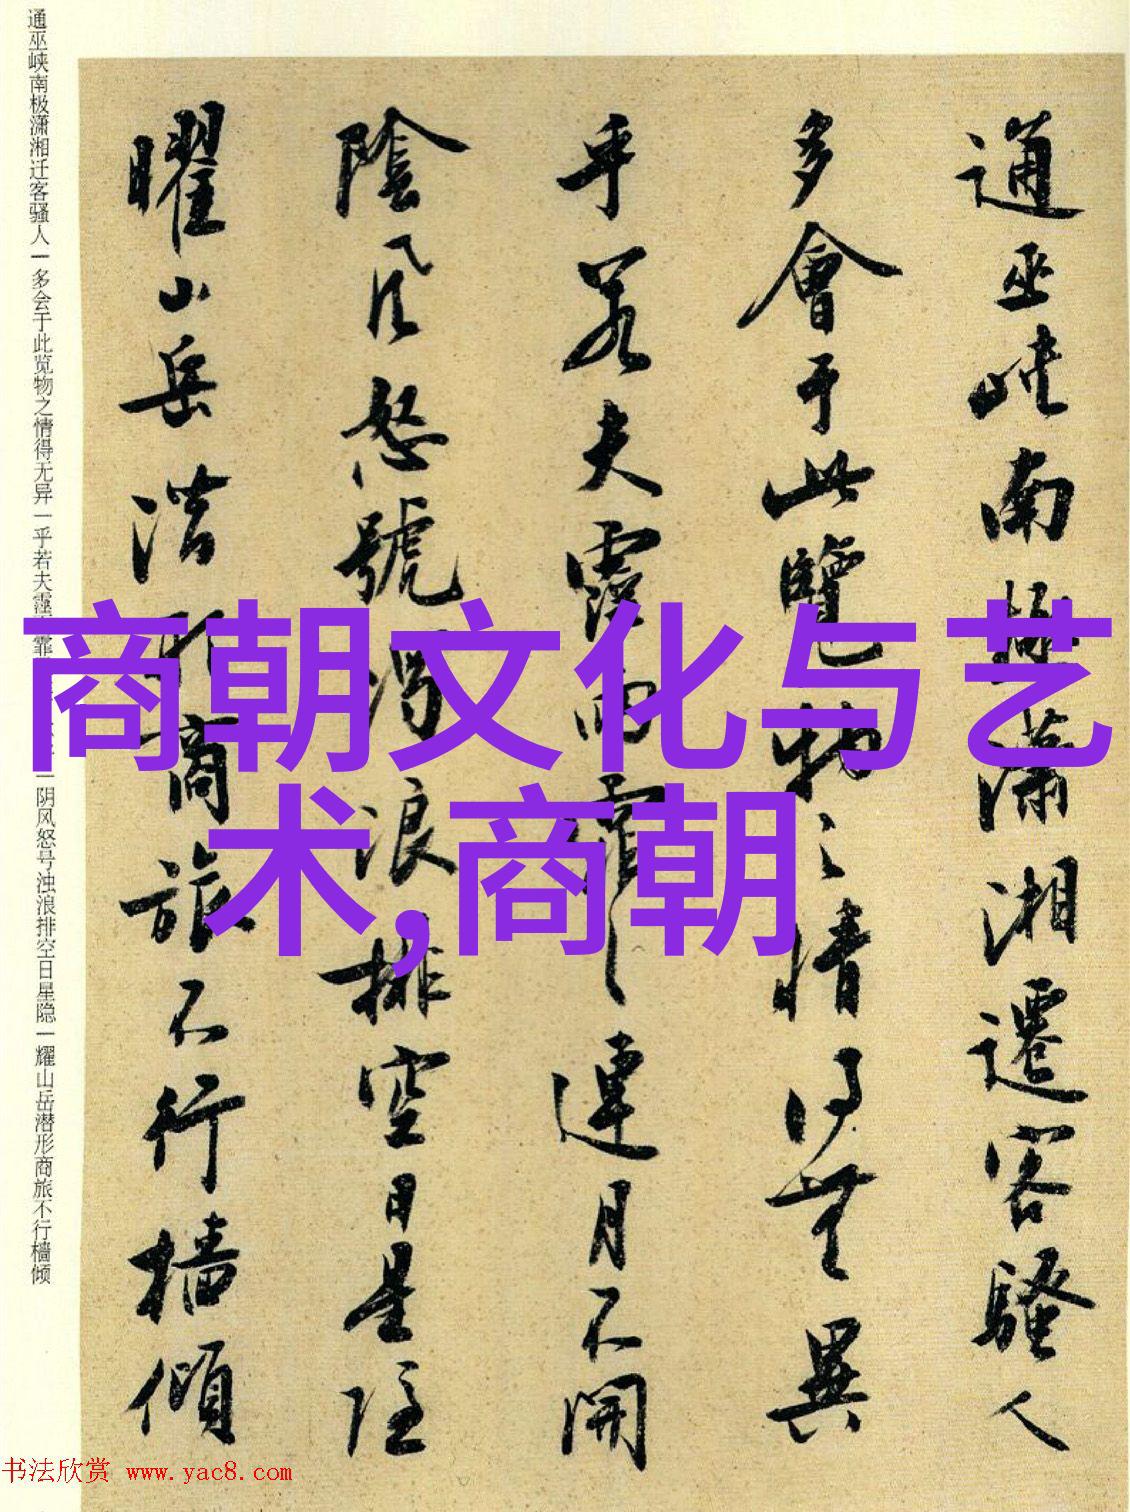 通巫峡南极潇湘迁客骚人
多會于此覽物之情得無異
乎若夫霪雨霏霏連月不開
陰風怒號濁浪排空日星隱
曜山岳潜形商旅不行檣傾
通巫峡南极潇湘迁客骚人一多会于此览物之情得无异一乎若夫霪
一阴风怒号浊浪排空日星隐一耀山岳潜形商旅不行樯倾
商朝文化与艺
术,商朝
书法欣赏 www.yac8.com